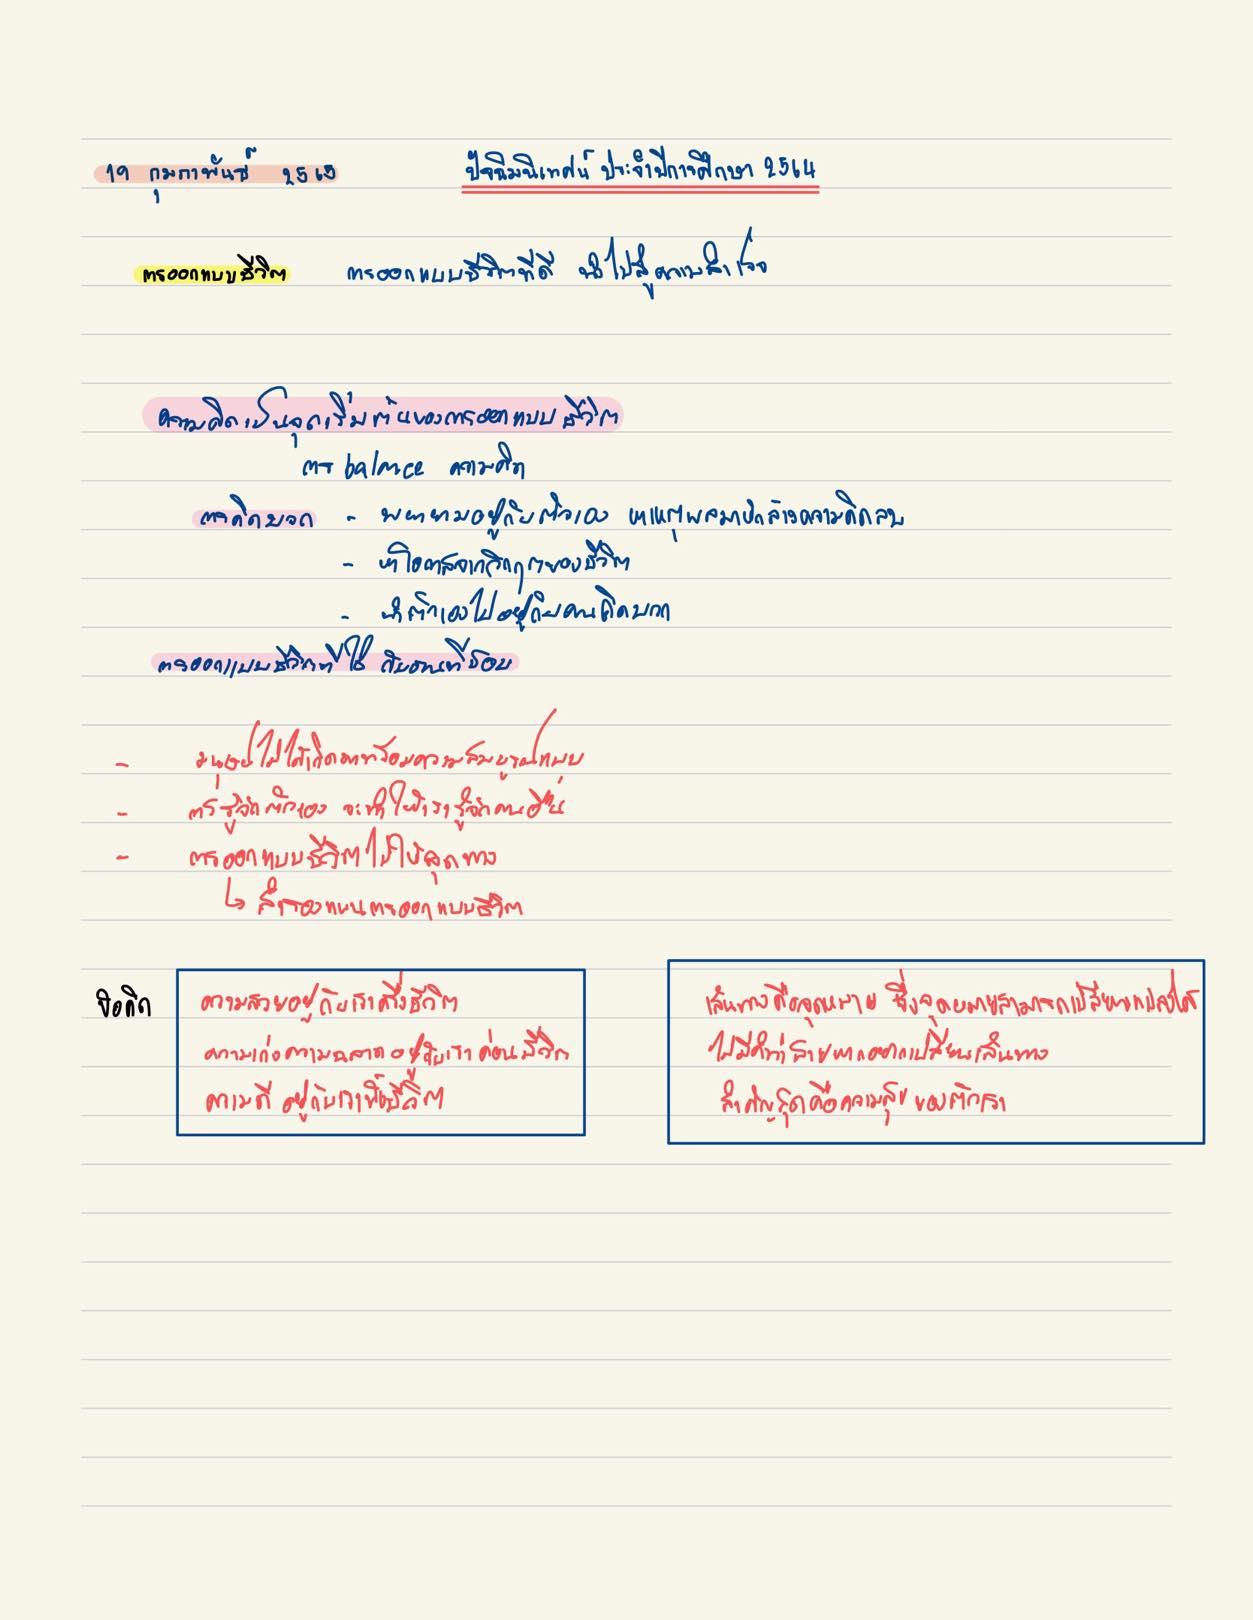 19 กุมภาพันธ์ 2565
ปัจฉิมนิเทศน์ ประจำปีการศึกษา 2564
การออกแบบชีวิต การออกแบบชีวิตที่ดี นำไปสู่ความสำเร็จ
ความคิดเป็นจุดเริ่มต้นของการออกแบบชีวิต
การ balance ความคิด
การคิดบวก - พยายามอยู่กับตัวเอง หาเหตุผลมาหักล้างความคิดลบ
- หาโอกาสจากวิกฤตของชีวิต
- นำตัวเองไปอยู่กับคนคิดบวก
การออกแบบชีวิตที่ใช่ กับงานที่ชอบ
- มนุษย์ไม่ได้เกิดมาพร้อมความสมบูรณ์แบบ
- การรู้จักตัวเอง จะทำให้เรารู้จักคนอื่น
- การออกแบบชีวิตไม่ใช่สุดทาง
↳ สำรองแผนการออกแบบชีวิต
ข้อคิด
ความสวยอยู่กับเราครึ่งชีวิต
ความเก่งความฉลาดอยู่กับเราค่อนชีวิต
ความดี อยู่กับเราทั้งชีวิต
เส้นทางคือจุดหมาย ซึ่งจุดหมายสามารถเปลี่ยนแปลงได้
ไม่มีคำว่าสายหากอยากเปลี่ยนเส้นทาง
สำคัญสุดคือความสุขของตัวเรา